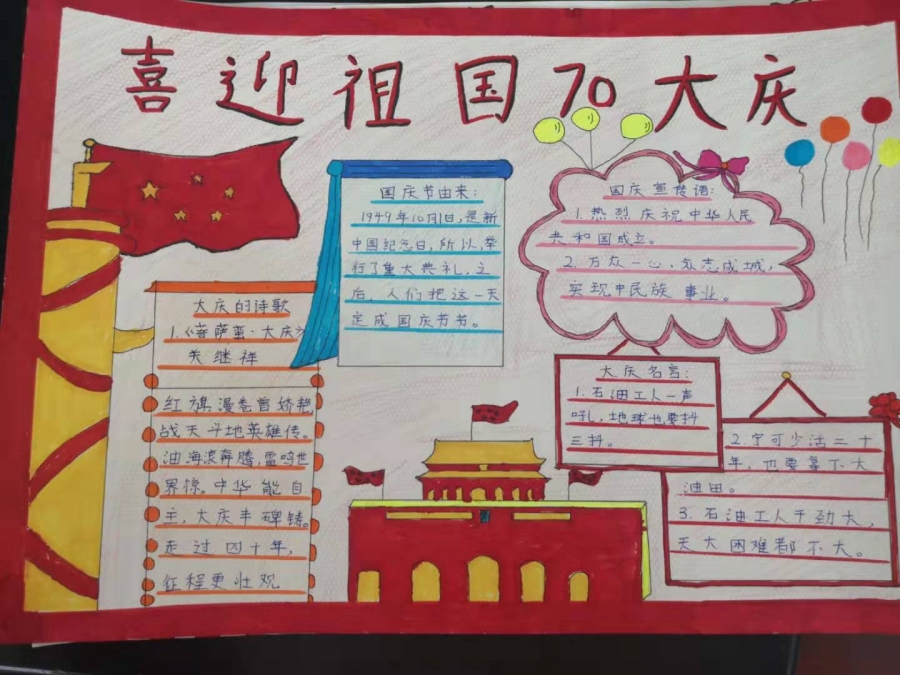 喜迎祖国70大庆
国庆节由来:
1949年10月1日,是新
中国纪念日,所以举
行了重大典礼,之
后,人们把这一天
定成国庆节节。
国庆宣传语:
1.热烈庆祝中华人民
共和国成立。
2.万众一心,众志成城,
实现中民族事业。
大庆的诗歌
1.《菩萨蛮·大庆》
关继祥
红旗漫卷曾娇艳,
战天斗地英雄传。
油海浪奔腾,雷鸣世
界惊。中华能自
主,大庆丰碑铸。
走过四十年,
征程更壮观
大庆名言:
1.石油工人一声
吼,地球也要抖
三抖。
2.宁可少活二十
年,也要拿下大
油田。
3.石油工人干劲大,
天大困难都不大。